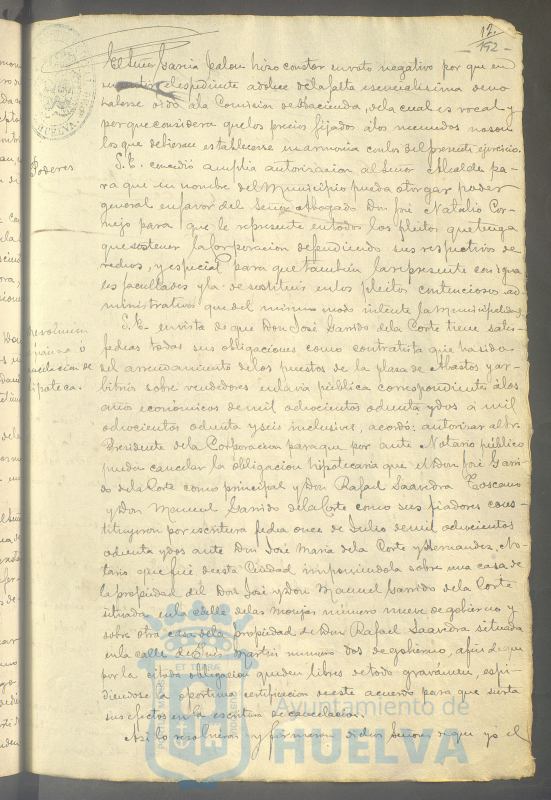 12.
192
El Señor García Jalon hizo constar su voto negativo por que en
el espediente adolece de la falta esencialísima de no
haberse oido a la Comision de Hacienda, de la cual es vocal y
por que considera que los precios fijados á los no son
los que debieran establecerse en armonia con los del presente ejercicio.
Poderes
S.E. concedió amplia autorizacion al Señor Alcalde pa-
ra que en nombre del Municipio pueda otorgar poder
general en favor del Señor Abogado Don José Natalio Cor-
nejo para que le represente en todos los pleitos que tenga
que sostener la Corporacion defendiendo sus respectivos de-
rechos, y especial para que tambien la represente con igua-
les facultades y la de sustituir en los pleitos contencioso ad-
ministrativos que del mismo modo intente la Municipalidad.
S.E. en vista de que Don José Garrido de la Corte tiene satis-
fechas todas sus obligaciones como contratista que ha sido
del arrendamiento de los puestos de la plaza de Abastos y ar-
bitrio sobre vendedores en la via pública correspondientes á los
años económicos de mil ochocientos ochenta y dos á mil
ochocientos ochenta y seis inclusives, acordó: autorizar al Sr.
Presidente de la Corporacion para que por ante Notario público
pueda cancelar la obligacion hipotecaria que el Don José Garri-
do de la Corte como principal y Don Rafael Saavedra Toscano
y Don Manuel Garrido de la Corte como sus fiadores cons-
tituyeron por escritura fecha once de Julio de mil ochocientos
ochenta y dos ante Don José Maria de la Corte y Hernandez, No-
tario que fué de esta Ciudad imponiéndola sobre una casa de
la propiedad del Don José y Don Manuel Garrido de la Corte
situada en la calle de las Monjas número nueve de gobierno y
sobre otra casa de la propiedad de Don Rafael Saavedra situada
en la calle de número dos de gobierno, a fin de que
por la citada obligacion queden libres de todo gravámen, espi-
diéndose la oportuna certificacion de este acuerdo para que surta
sus efectos en la escritura de cancelacion.
Asi lo resolvieron y firmaron dichos Señores de que yo el
cancelacion de
hipoteca.
HUELVA
Ayuntamiento de
HUELVA